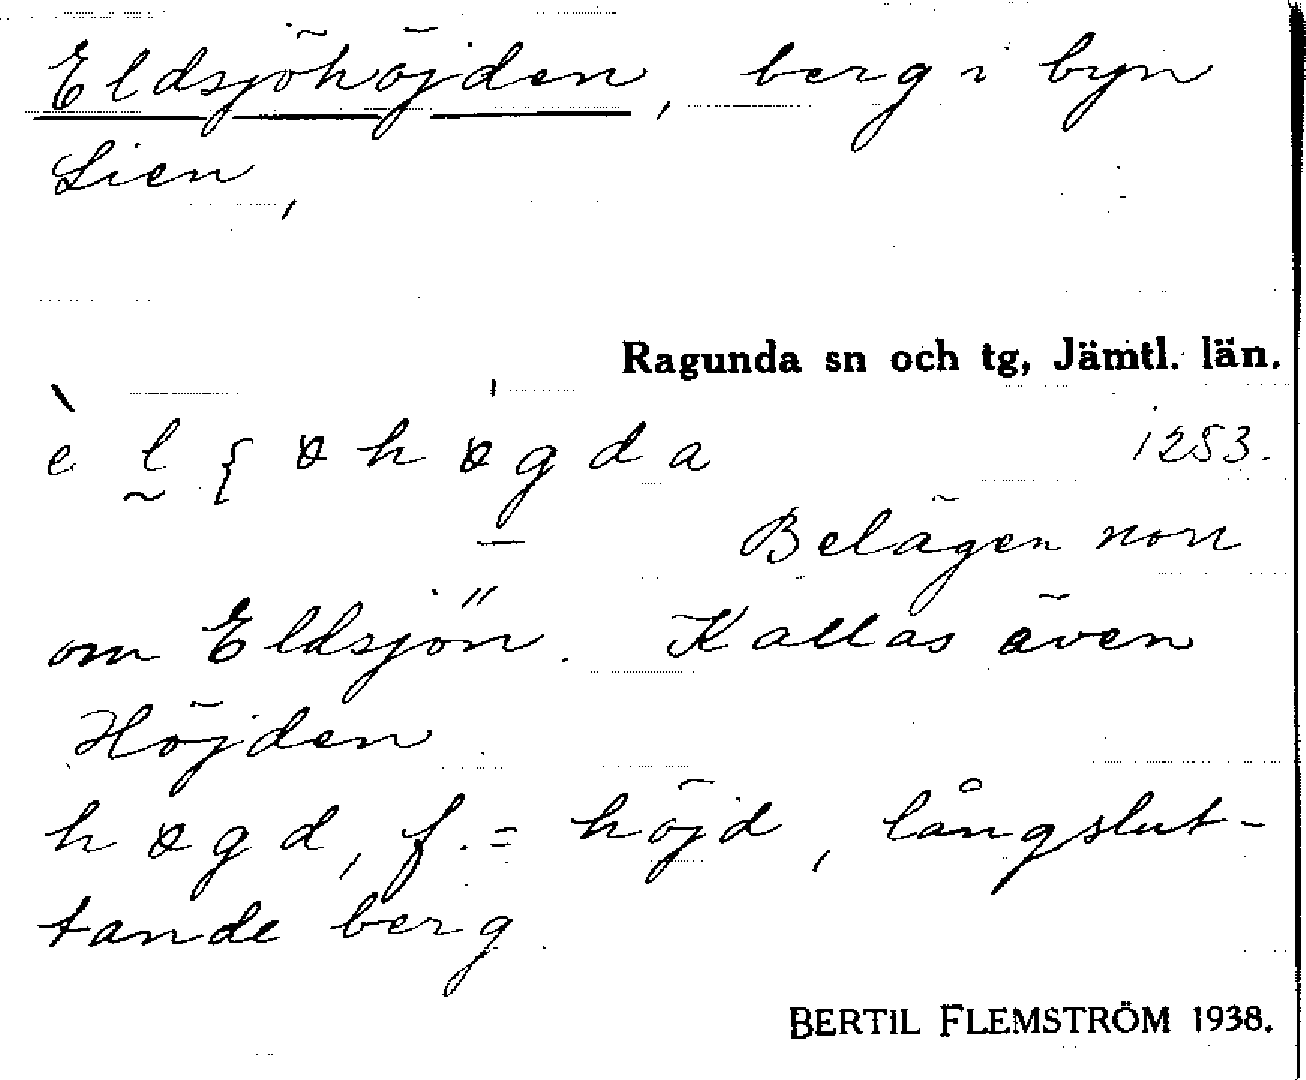 Eldsjöhöjden, berg i byn
Lien,
Ragunda sn och tg, Jämtl. län.
1253.
Belägen norr
om Eldsjön. Kallas även
Höjden
høgd, f. = höjd, långslut-
tande berg
BERTIL FLEMSTRÖM 1938.